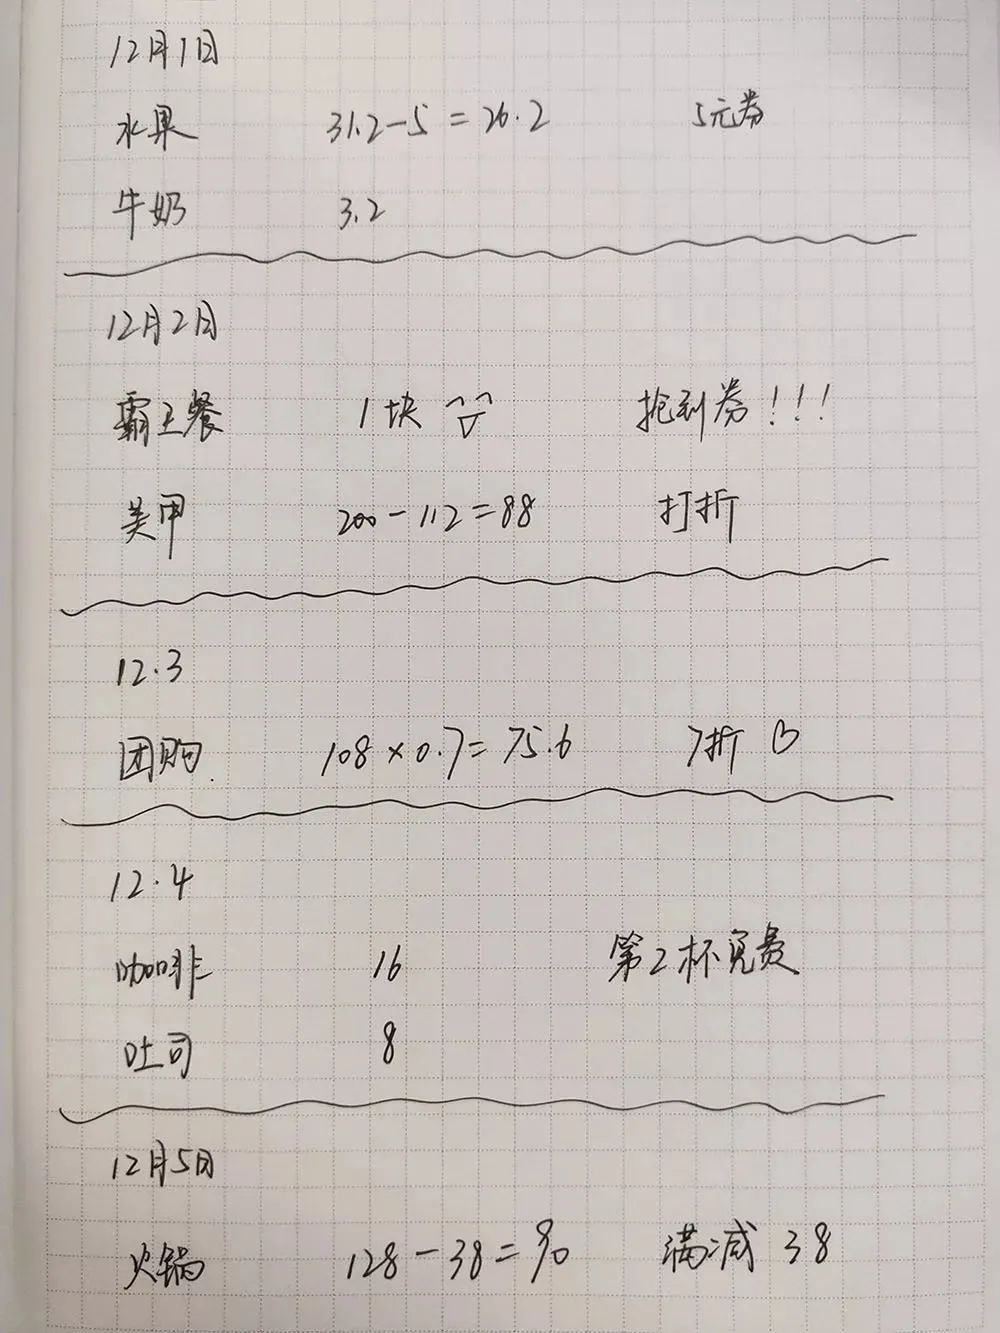 12月1日
水果 31.2-5=26.2 5元券
牛奶 3.2
12月2日
霸王餐 1块 抢到券!!!
美甲 200-112=88 打折
12.3
团购 108×0.7=75.6 7折
12.4
咖啡 16 第2杯免费
吐司 8
12月5日
火锅 128-38=90 满减38